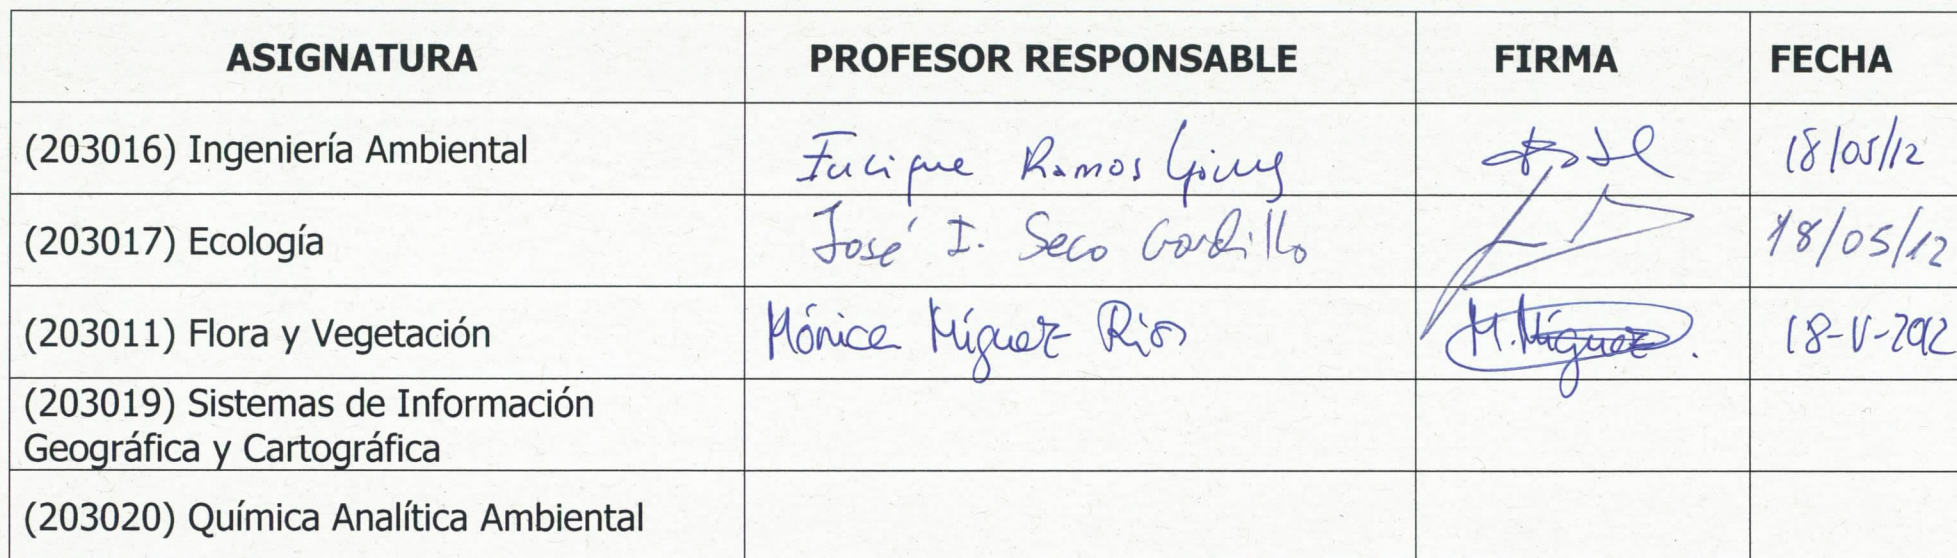 ASIGNATURA PROFESOR RESPONSABLE FIRMA FECHA
(203016) Ingeniería Ambiental Enrique Ramos 18/05/12
(203017) Ecología José I. Seco Gordillo 18/05/12
(203011) Flora y Vegetación Mónica Míguez Rios M. Míguez 18-V-2012
(203019) Sistemas de Información
Geográfica y Cartográfica
(203020) Química Analítica Ambiental